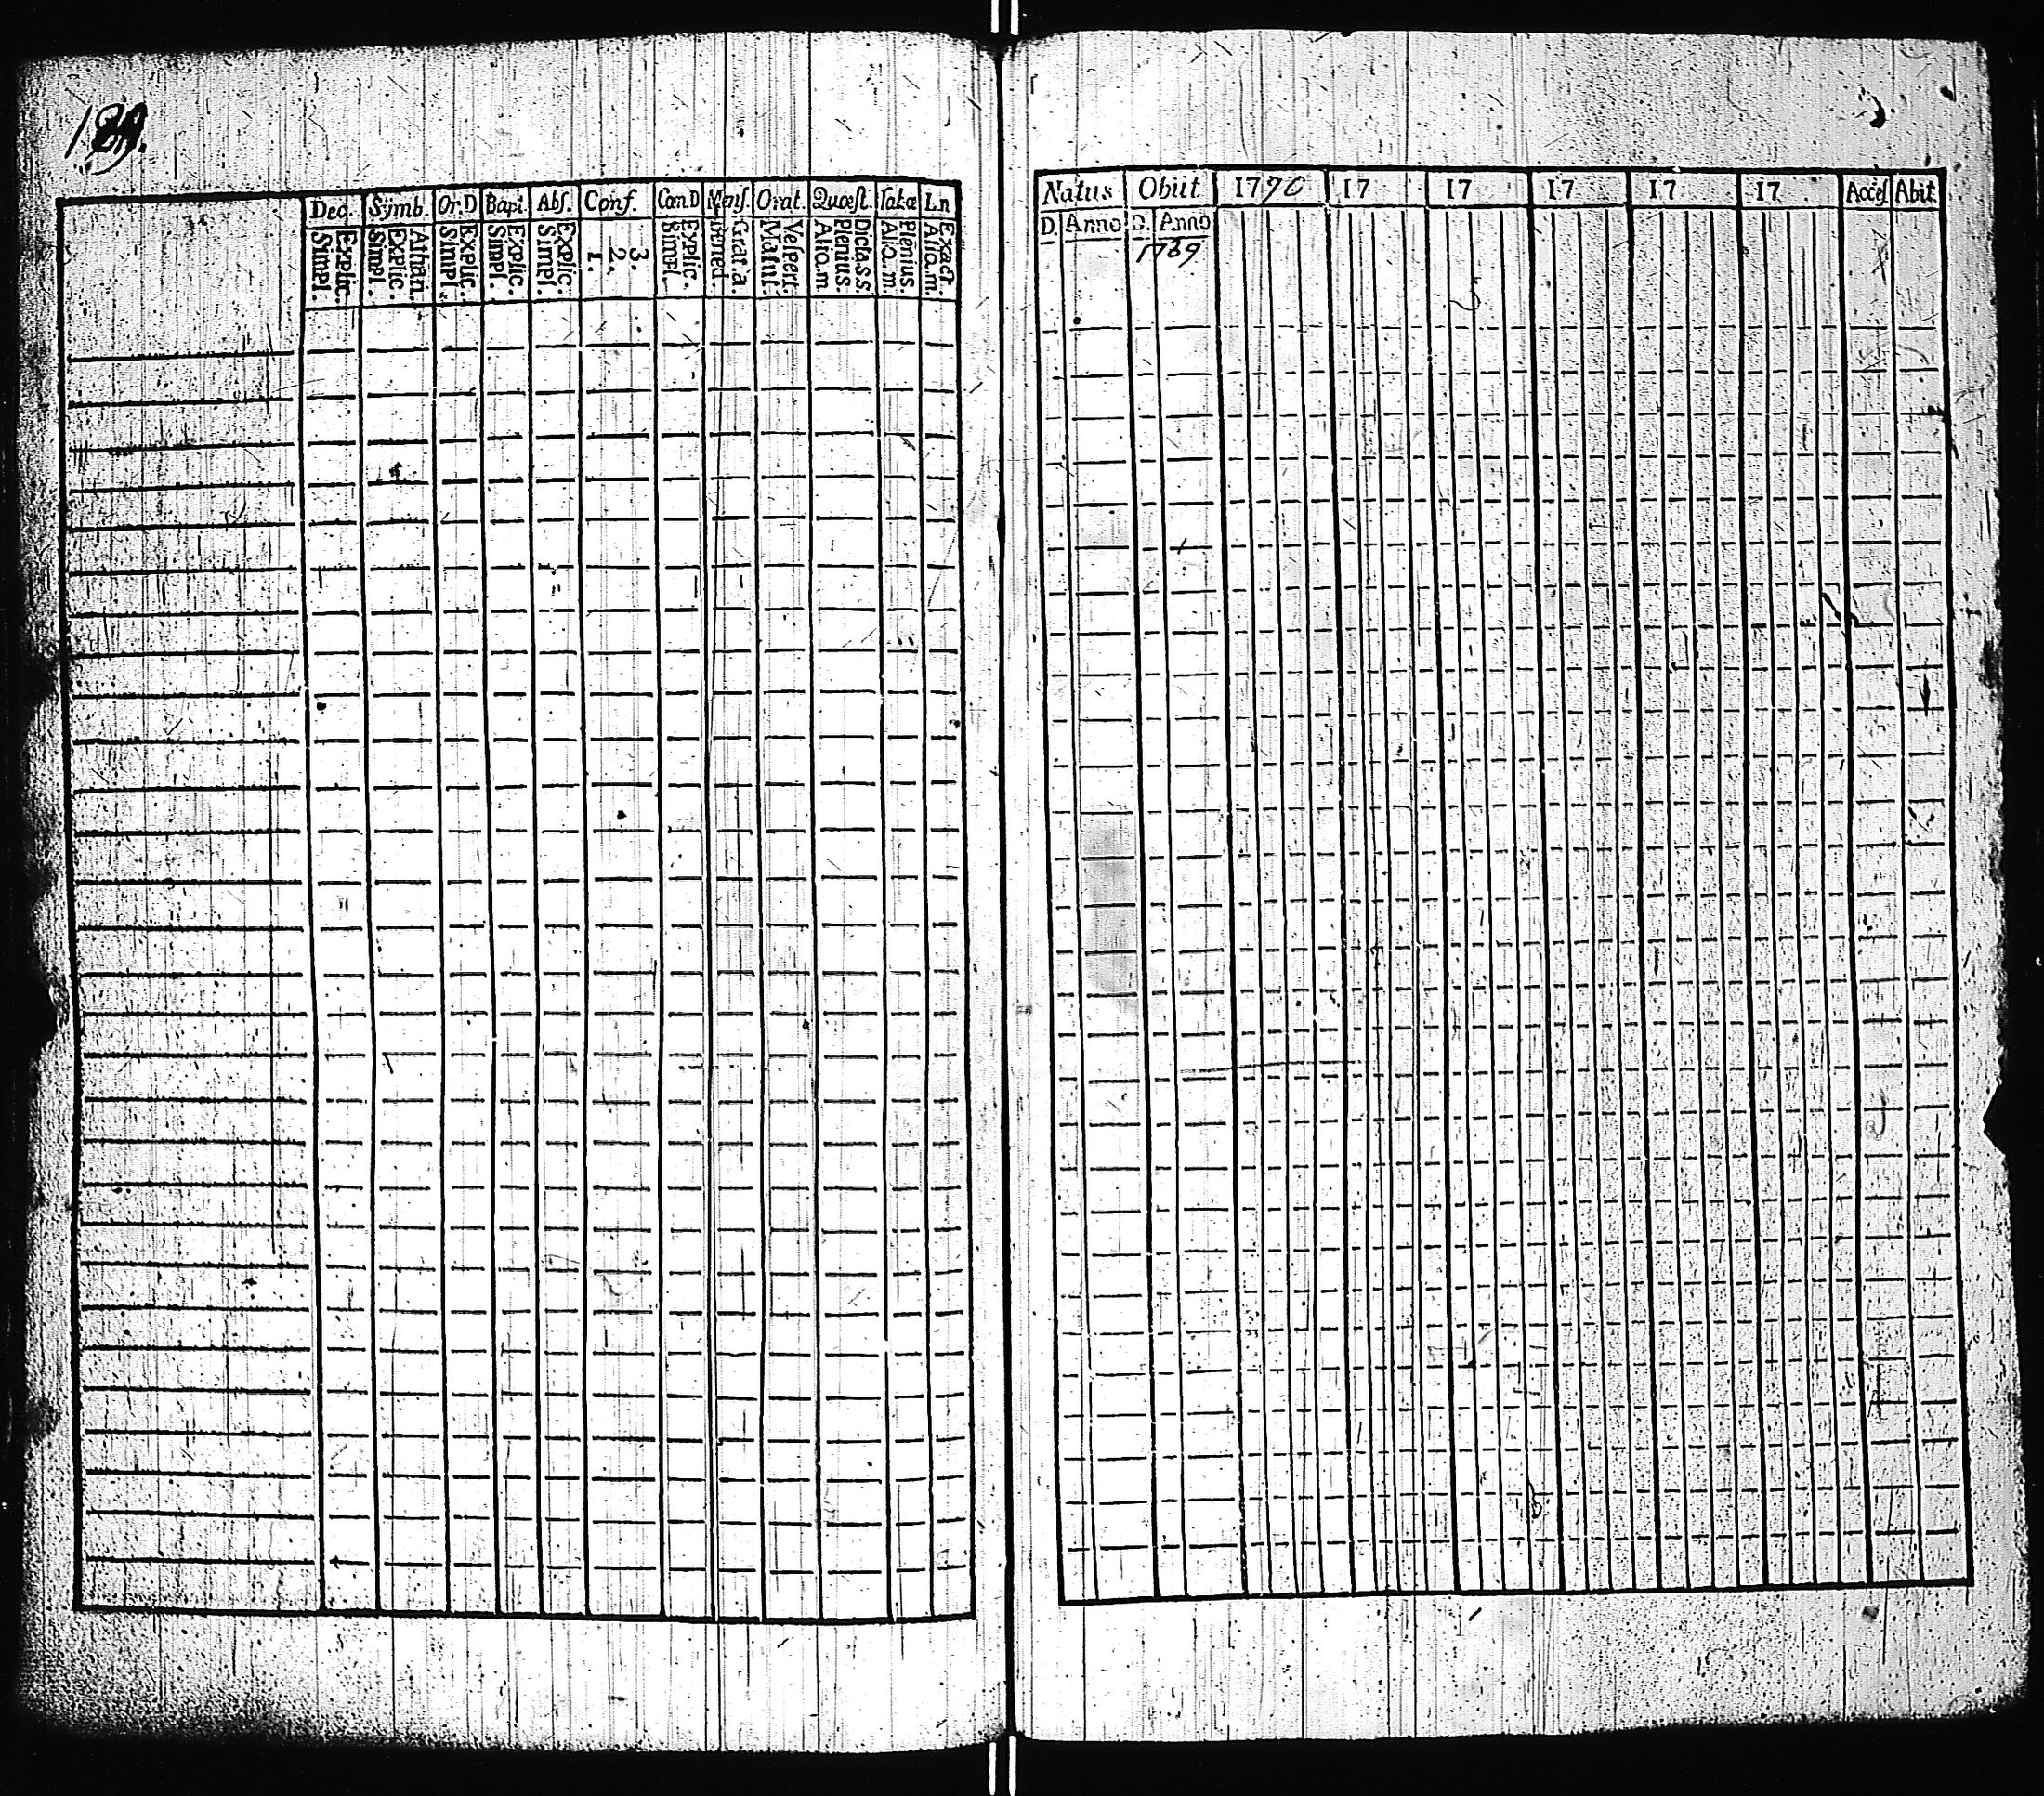 Dec. Symb. Or.D Bapt. Abſ. Conf. Cœn.D Menſ. Orat. Quœſt. Tab.œ L.n
Simpl. Explic. Simpl. Explic. Athan. Simpl. Explic. Simpl. Explic. Simpl. Explic. 1. 2. 3. Simpl. Explic. Bened. Grat.a. Matut. Veſpert. Alio.m Plenius Dicta.s.s. Alio.m Plenius. Alio.m. Exact.
Natus Obiit 1770 17 17 17 17 17 Acceſ Abit
D. Anno D. Anno
1769